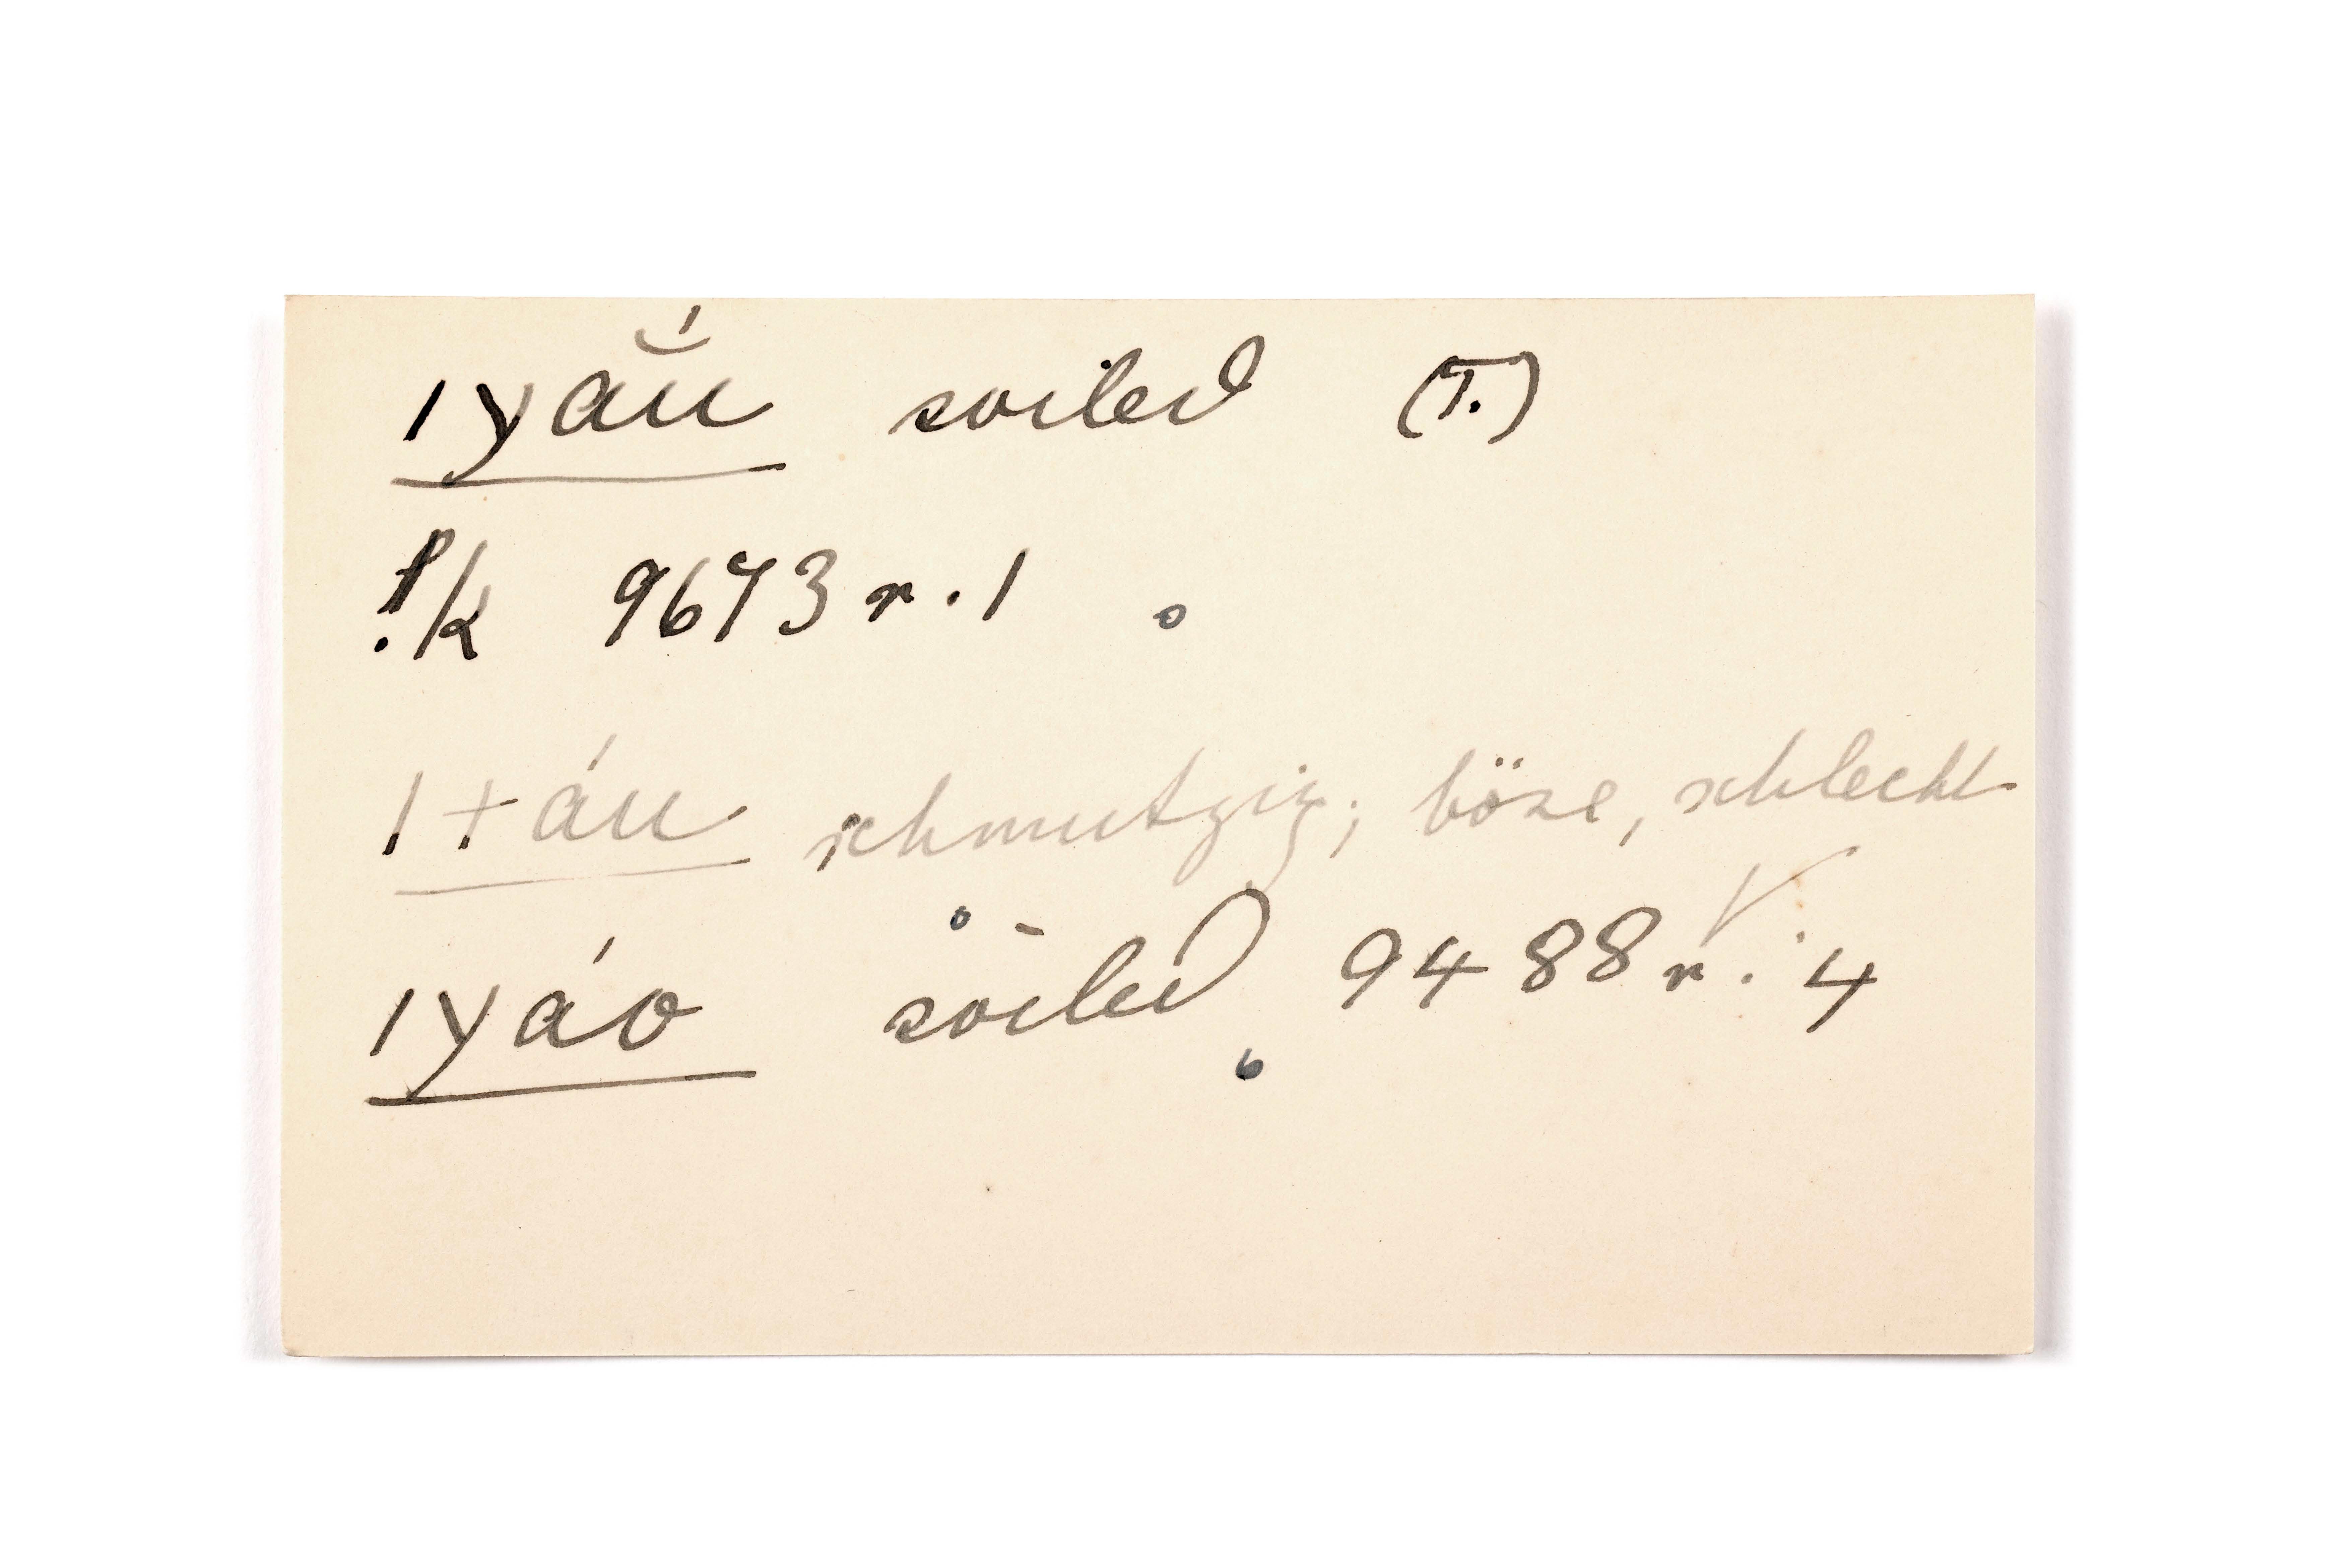 ǀyắu soiled (T.)
!k 9673 r. 1
ǀχáu schmutzig; böse, schlecht
ǀyáo soiled 9488 r. 4